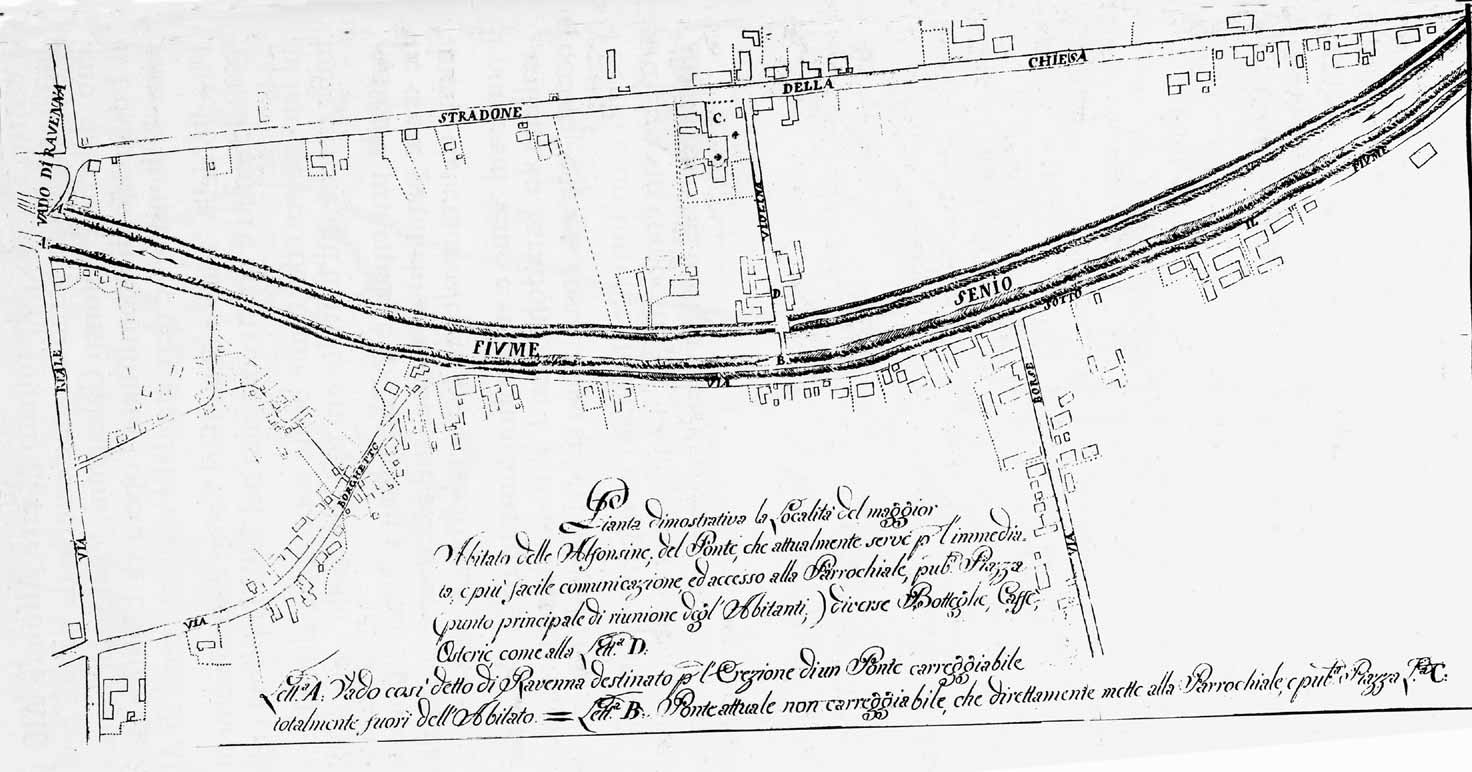 VADO DI RAVENNA
STRADONE
DELLA
CHIESA
C.
VIOLINA
D.
A
FIUME
SENIO
FIVME
B.
VIA
SOTTO
IL
REALE
VIA
BORGHETTO
VIA
BORSE
VIA
Pianta dimostrativa la Località del maggior
Abitato delle Alfonsine, del Ponte, che attualmente serve p l'immedia-
ta, e più facile comunicazione, ed accesso alla Parrochiale, pub.ª Piazza
(punto principale di riunione degl'Abitanti,) diverse Botteghe, Caffè,
Osterie, come alla Lett.ª D.
Lett.ª A. Vado così detto di Ravenna destinato p l'Erezione di un Ponte carreggiabile
totalmente fuori dell'Abitato. = Lett.ª B. Ponte attuale non carreggiabile, che direttamente mette alla Parrochiale, e pub.ª Piazza L.ª C.